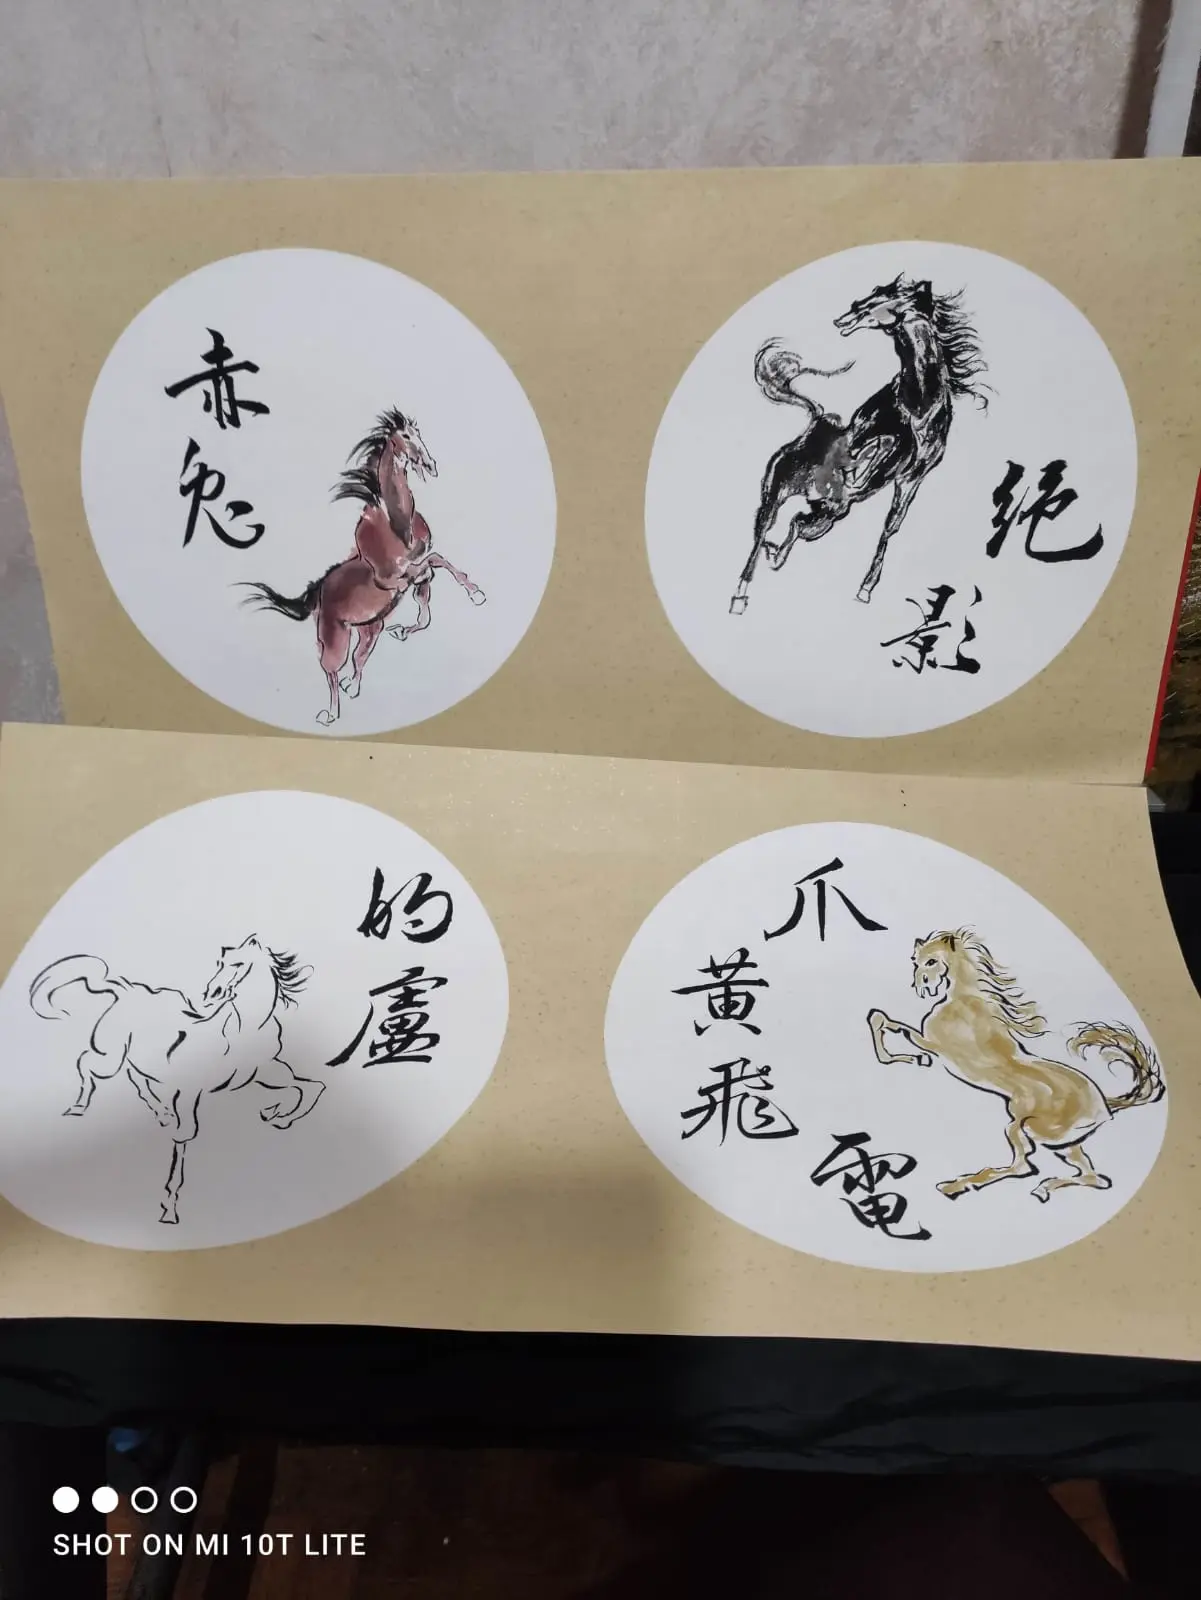 赤
兔
绝
影
的
盧
爪
黄
飛
電
SHOT ON MI 10T LITE